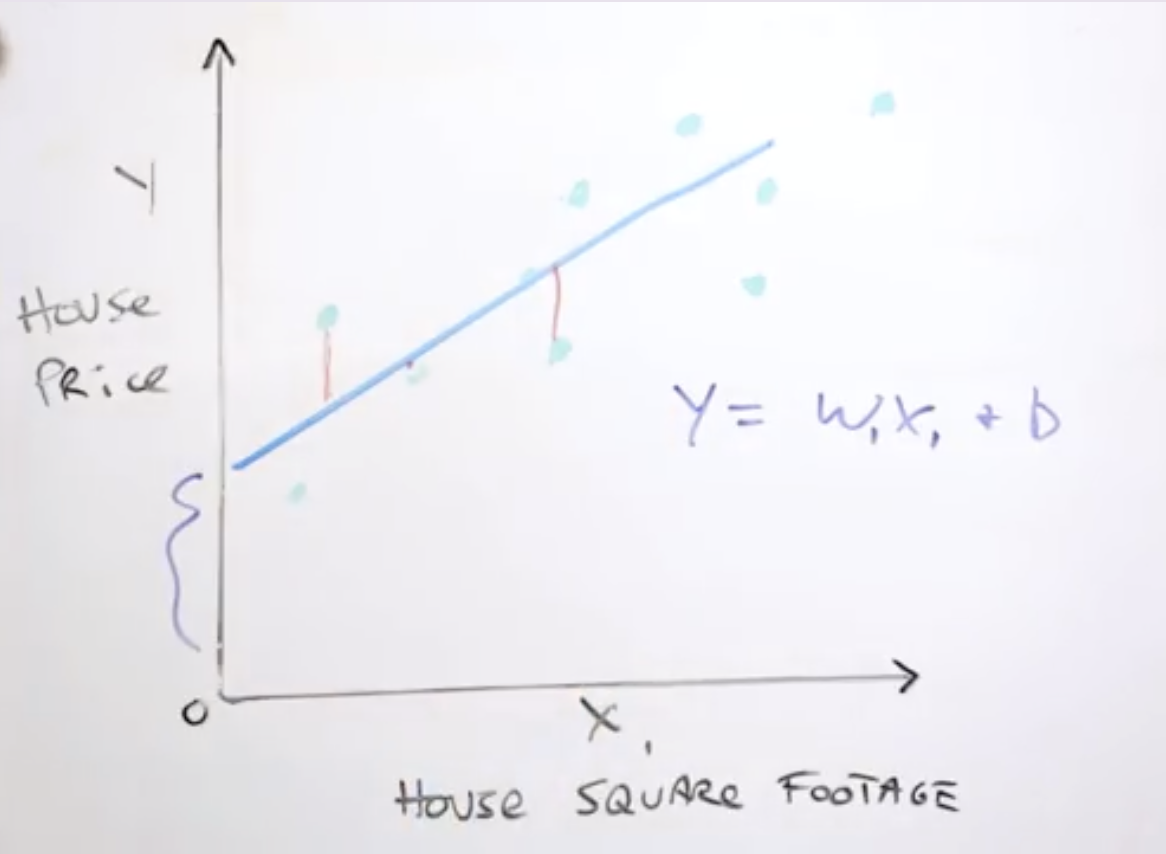 Y
House
Price
Y = W₁X₁ + b
0
X₁
House SQUARe FOOTAGE